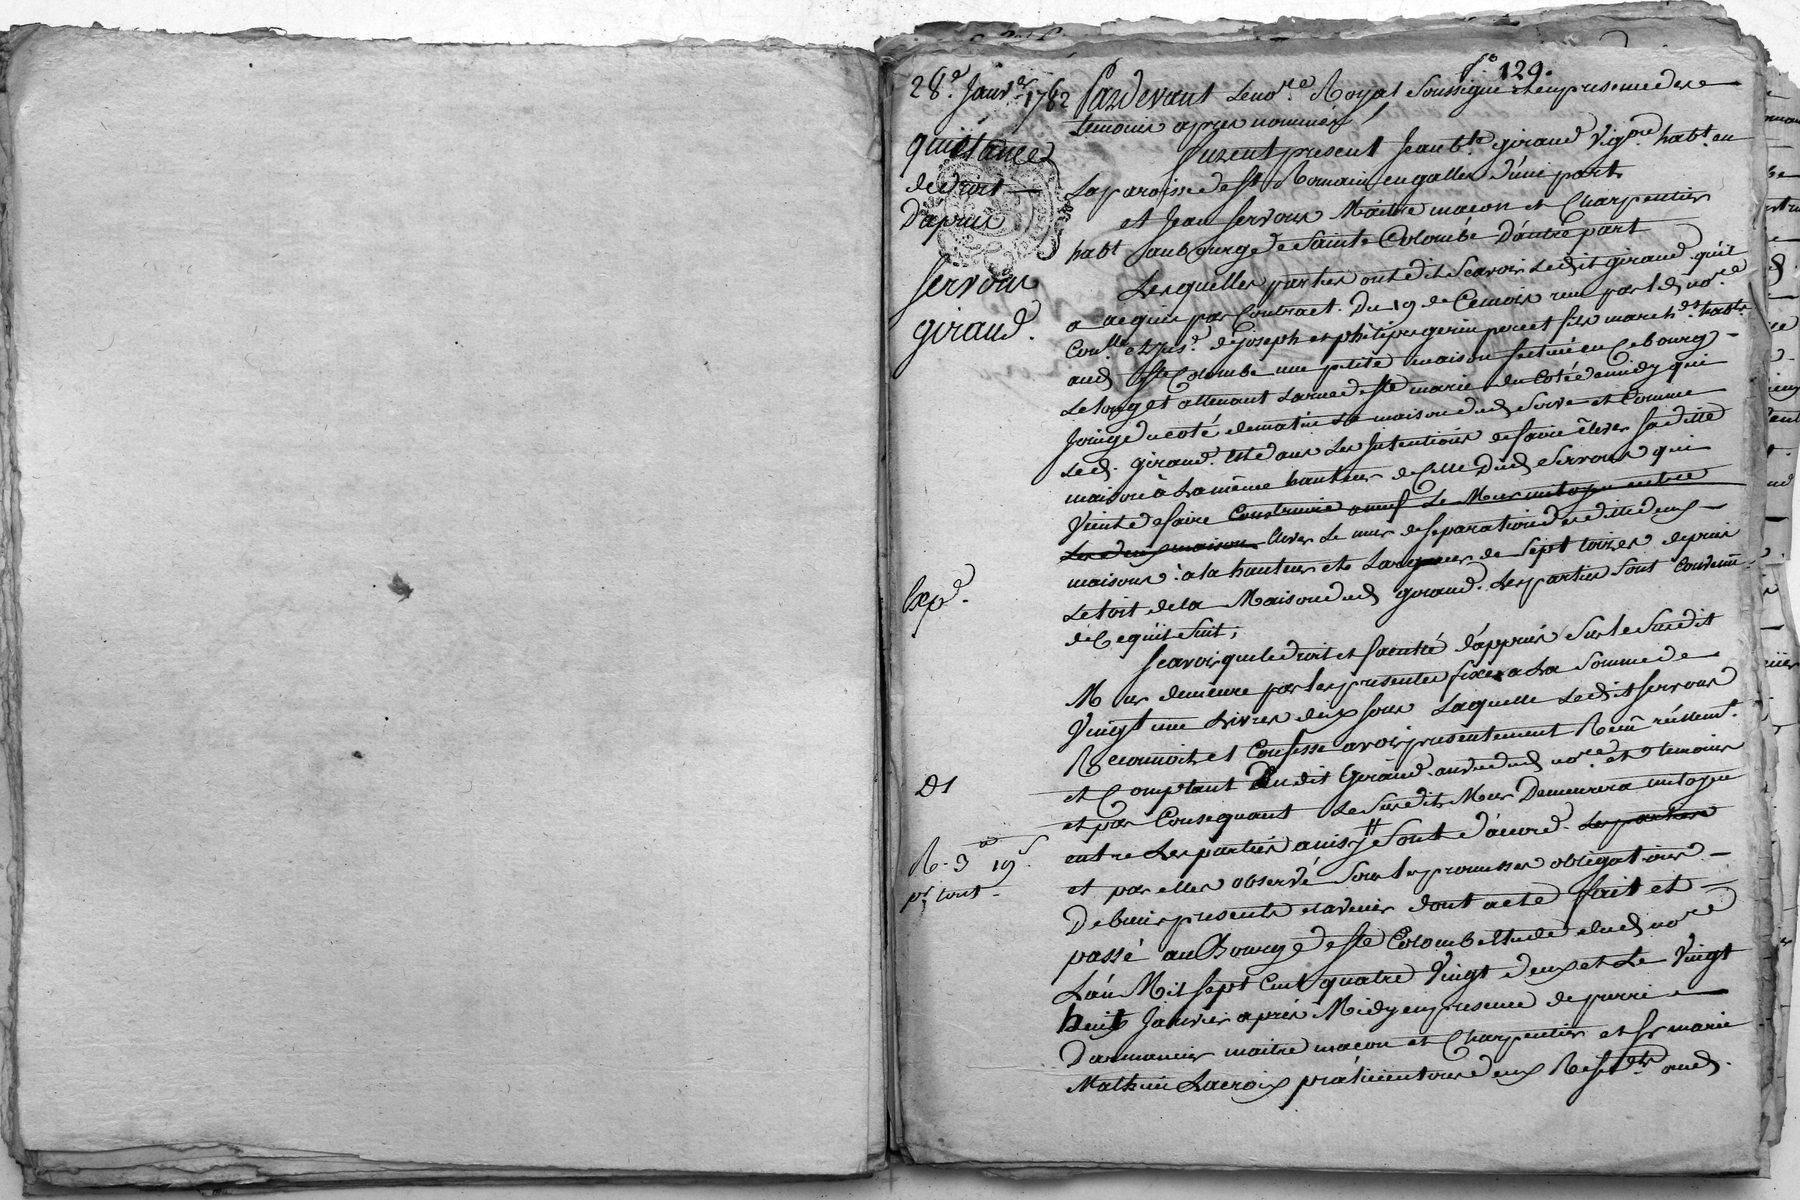 fo. 129.
28e. Janvr. 1782
quittance
de droit
D'apuis
Servour
giraud.
Expd.
D1
R. 3 # 19 s.
pr. tout
Pardevant Le nore. Royal Soussigné et en presence des
temoins après nommés
furent present Jean bte. giraud Vigron. habt. en
La paroisse de st Romain en galler d'une part
et Jean Servour Maitre macon et Charpentier
habt au bourg de Sainte Colombe D'autre part
Lesquelles parties ont dit Scavoir Ledit giraud qu'il
a acquis par Contract Du 19 de Ce mois reçu par led. nore.
de joseph et philipe gerin pere et fils marchds. habts.
aud. Ste Colombe une petite maison scituée en Ce bourg
Le long et attenant La rue de ste marie du coté de midy qui
Joinge du coté de matin La maison dud. Serve et Comme
Led. giraud. est dans Les Intentions de faire élever Sa ditte
maison à La même hauteur de Celle Dud. Servour qui
Vient de faire Construire a neuf Le Mur mitoyen entre
Les deux maison Elever Le mur de separation desditte deux
maisons à la hauteur et Largeur de Sept toises depuis
Le toit de la Maison dud. giraud. Les parties sont Convenu
de Ce qui Suit,
Scavoir que le droit et faculté d'appuis Sur le Susdit
Mur demeure par les presentes fixés a La Somme de
Vingt une Livres deux sous Laquelle Ledit Servour
Reconnoit et Confesse avoir presentement Recu réellemt.
et Comptant Dudit Giraud au vu dud. nore. et temoins
et par Consequant Le Susdit Mur Demeurera mitoyen
entre Les parties ainsy Sont d'acord. Les parties
et par elles observé Sous les promesses obligations
De biens presents et avenir dont acte fait et
passé au Bourg de ste Colombe Etude dud. nore
L'an Mil sept Cent quatre Vingt deux et Le Vingt
huit Janvier après Midy en presence de pierre
Darmancier maitre macon et Charpentier et sr marie
Mathieu Lacroix praticien tous deux Residts aud.